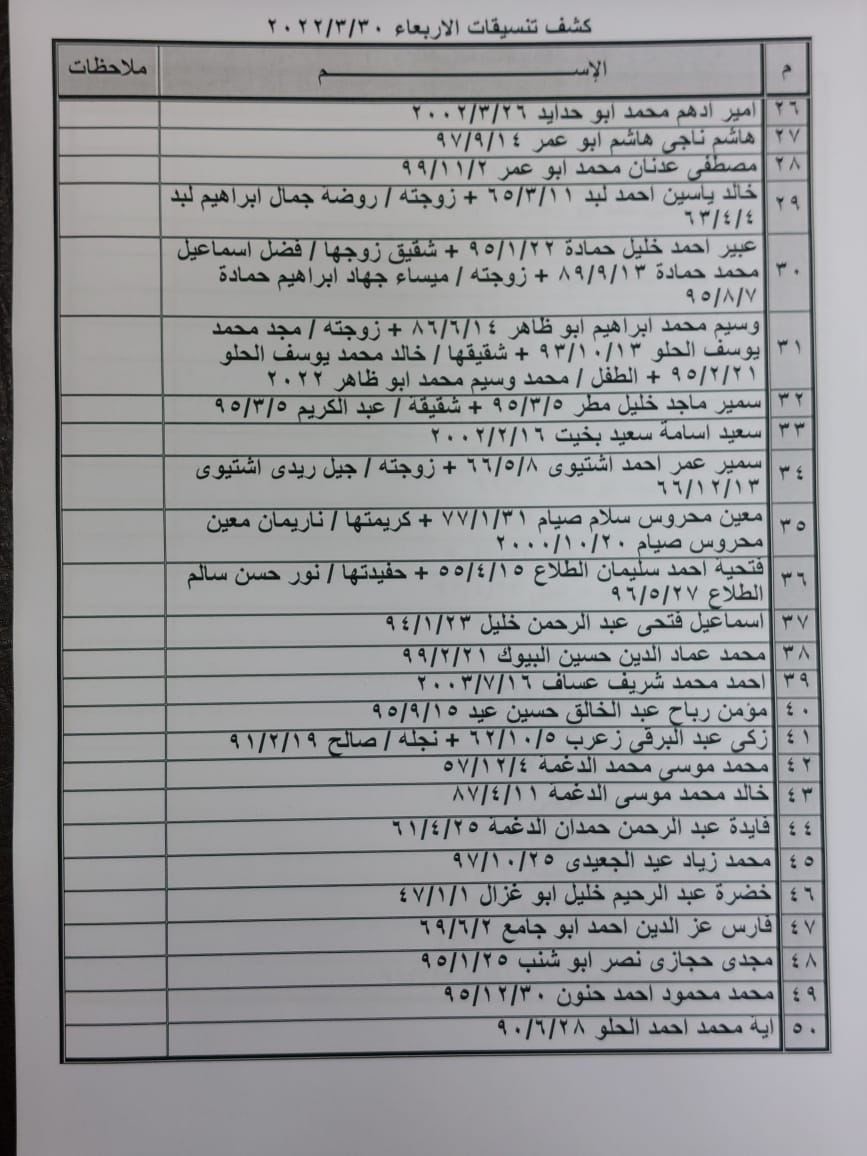 كشف تنسيقات الاربعاء ٢٠٢٢/٣/٣٠
م الإســـــــــــــــم ملاحظات
٢٦ امير ادهم محمد ابو حدايد ٢٠٠٢/٣/٢٦
٢٧ هاشم ناجى هاشم ابو عمر ٩٧/٩/١٤
٢٨ مصطفى عدنان محمد ابو عمر ٩٩/١١/٢
٢٩ خالد ياسين احمد لبد ٦٥/٣/١١ + زوجته / روضة جمال ابراهيم لبد
٦٣/٤/٤
٣٠ عبير احمد خليل حمادة ٩٥/١/٢٢ + شقيق زوجها / فضل اسماعيل
محمد حمادة ٨٩/٩/١٣ + زوجته / ميساء جهاد ابراهيم حمادة
٩٥/٨/٧
٣١ وسيم محمد ابراهيم ابو ظاهر ٨٦/٦/١٤ + زوجته / مجد محمد
يوسف الحلو ٩٣/١٠/١٣ + شقيقها / خالد محمد يوسف الحلو
٩٥/٢/٢١ + الطفل / محمد وسيم محمد ابو ظاهر ٢٠٢٢
٣٢ سمير ماجد خليل مطر ٩٥/٣/٥ + شقيقة / عبد الكريم ٩٥/٣/٥
٣٣ سعيد اسامة سعيد بخيت ٢٠٠٢/٢/١٦
٣٤ سمير عمر احمد اشتيوى ٦٦/٥/٨ + زوجته / جيل ريدى اشتيوى
٦٦/١٢/١٣
٣٥ معين محروس سلام صيام ٧٧/١/٣١ + كريمتها / ناريمان معين
محروس صيام ٢٠٠٠/١٠/٢٠
٣٦ فتحية احمد سليمان الطلاع ٥٥/٤/١٥ + حفيدتها / نور حسن سالم
الطلاع ٩٦/٥/٢٧
٣٧ اسماعيل فتحى عبد الرحمن خليل ٩٤/١/٢٣
٣٨ محمد عماد الدين حسين البيوك ٩٩/٢/٢١
٣٩ احمد محمد شريف عساف ٢٠٠٣/٧/١٦
٤٠ مؤمن رباح عبد الخالق حسين عيد ٩٥/٩/١٥
٤١ زكى عبد البرقى زعرب ٦٢/١٠/٥ + نجله / صالح ٩١/٢/١٩
٤٢ محمد موسى محمد الدغمة ٥٧/١٢/٤
٤٣ خالد محمد موسى الدغمة ٨٧/٤/١١
٤٤ فايدة عبد الرحمن حمدان الدغمة ٦١/٤/٢٥
٤٥ محمد زياد عيد الجعيدى ٩٧/١٠/٢٥
٤٦ خضرة عبد الرحيم خليل ابو غزال ٤٧/١/١
٤٧ فارس عز الدين احمد ابو جامع ٦٩/٦/٢
٤٨ مجدى حجازى نصر ابو شنب ٩٥/١/٢٥
٤٩ محمد محمود احمد حنون ٩٥/١٢/٣٠
٥٠ اية محمد احمد الحلو ٩٠/٦/٢٨